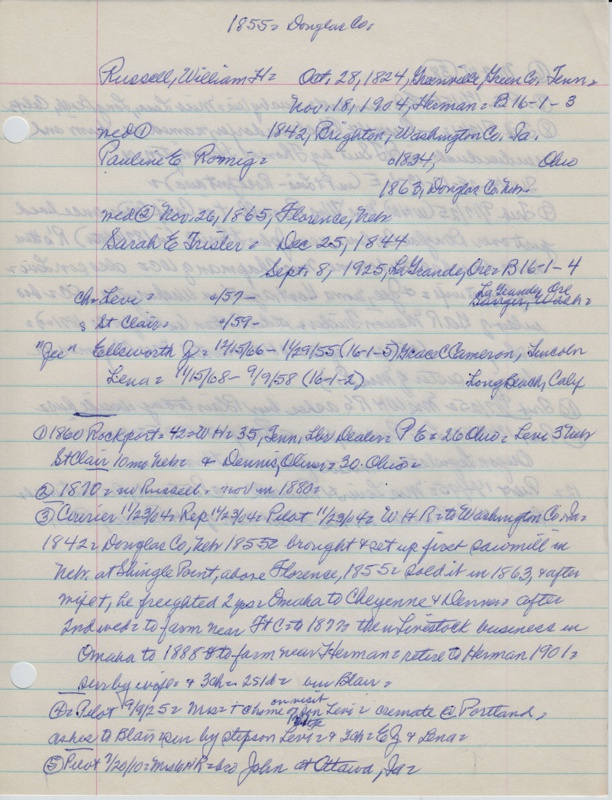 1855= Douglas Co.
Russell, William H= Oct. 28, 1824, Greenville, Green Co, Tenn=
Nov. 18, 1904, Herman= B16-1-3
wed ① 1842, Brighton, Washington Co. Ia.
Pauline E Romig= c1834, Ohio
1863, Douglas Co. Neb=
wed ② Nov. 26, 1865, Florence, Neb=
Sarah E Trisler= Dec 25, 1844
Sept. 8, 1925, LaGrande, Ore= B16-1-4
ch= Levi= c/57- LaGrande, Ore
& St Clair= c/59-
"Jee" Ellsworth J= 12/15/66- 11/29/55 (16-1-5) Grace C Cameron, Lincoln
Lena= 11/15/68- 9/9/58 (16-1-2) Long Beach, Calif
① 1860 Rockport= 42= WH= 35, Tenn, Lbr Dealer= P E= 26 Ohio= Levi 3 Neb=
St Clair 10mo Neb= & Dennis, Oliver= 30. Ohio=
② 1870= no Russell= nor in 1880=
③ Courier 11/23/04= Rep 11/24/04= Pilot 11/23/04= W H R= to Washington Co, Ia=
1842= Douglas Co, Neb 1855= brought & set up first sawmill in
Neb. at Shingle Point, above Florence, 1855= sold it in 1863, & after
wife +, he freighted 2 yrs= Omaha to Cheyenne & Denver= after
2nd wed= to farm near Ft C= to 1877= then Livestock business in
Omaha to 1888 & to farm near Herman= retire to Herman 1901=
surv by wife= & 3ch= 2s1d= bur Blair=
④= Pilot 9/9/25= Mrs= + @ home of son Levi= cremate @ Portland,
on visit
ashes to Blair= surv by stepson Levi= & 2ch= E J & Lena=
⑤ Pilot 7/20/10= Mrs W H R= bro John at Ottawa, Ia=